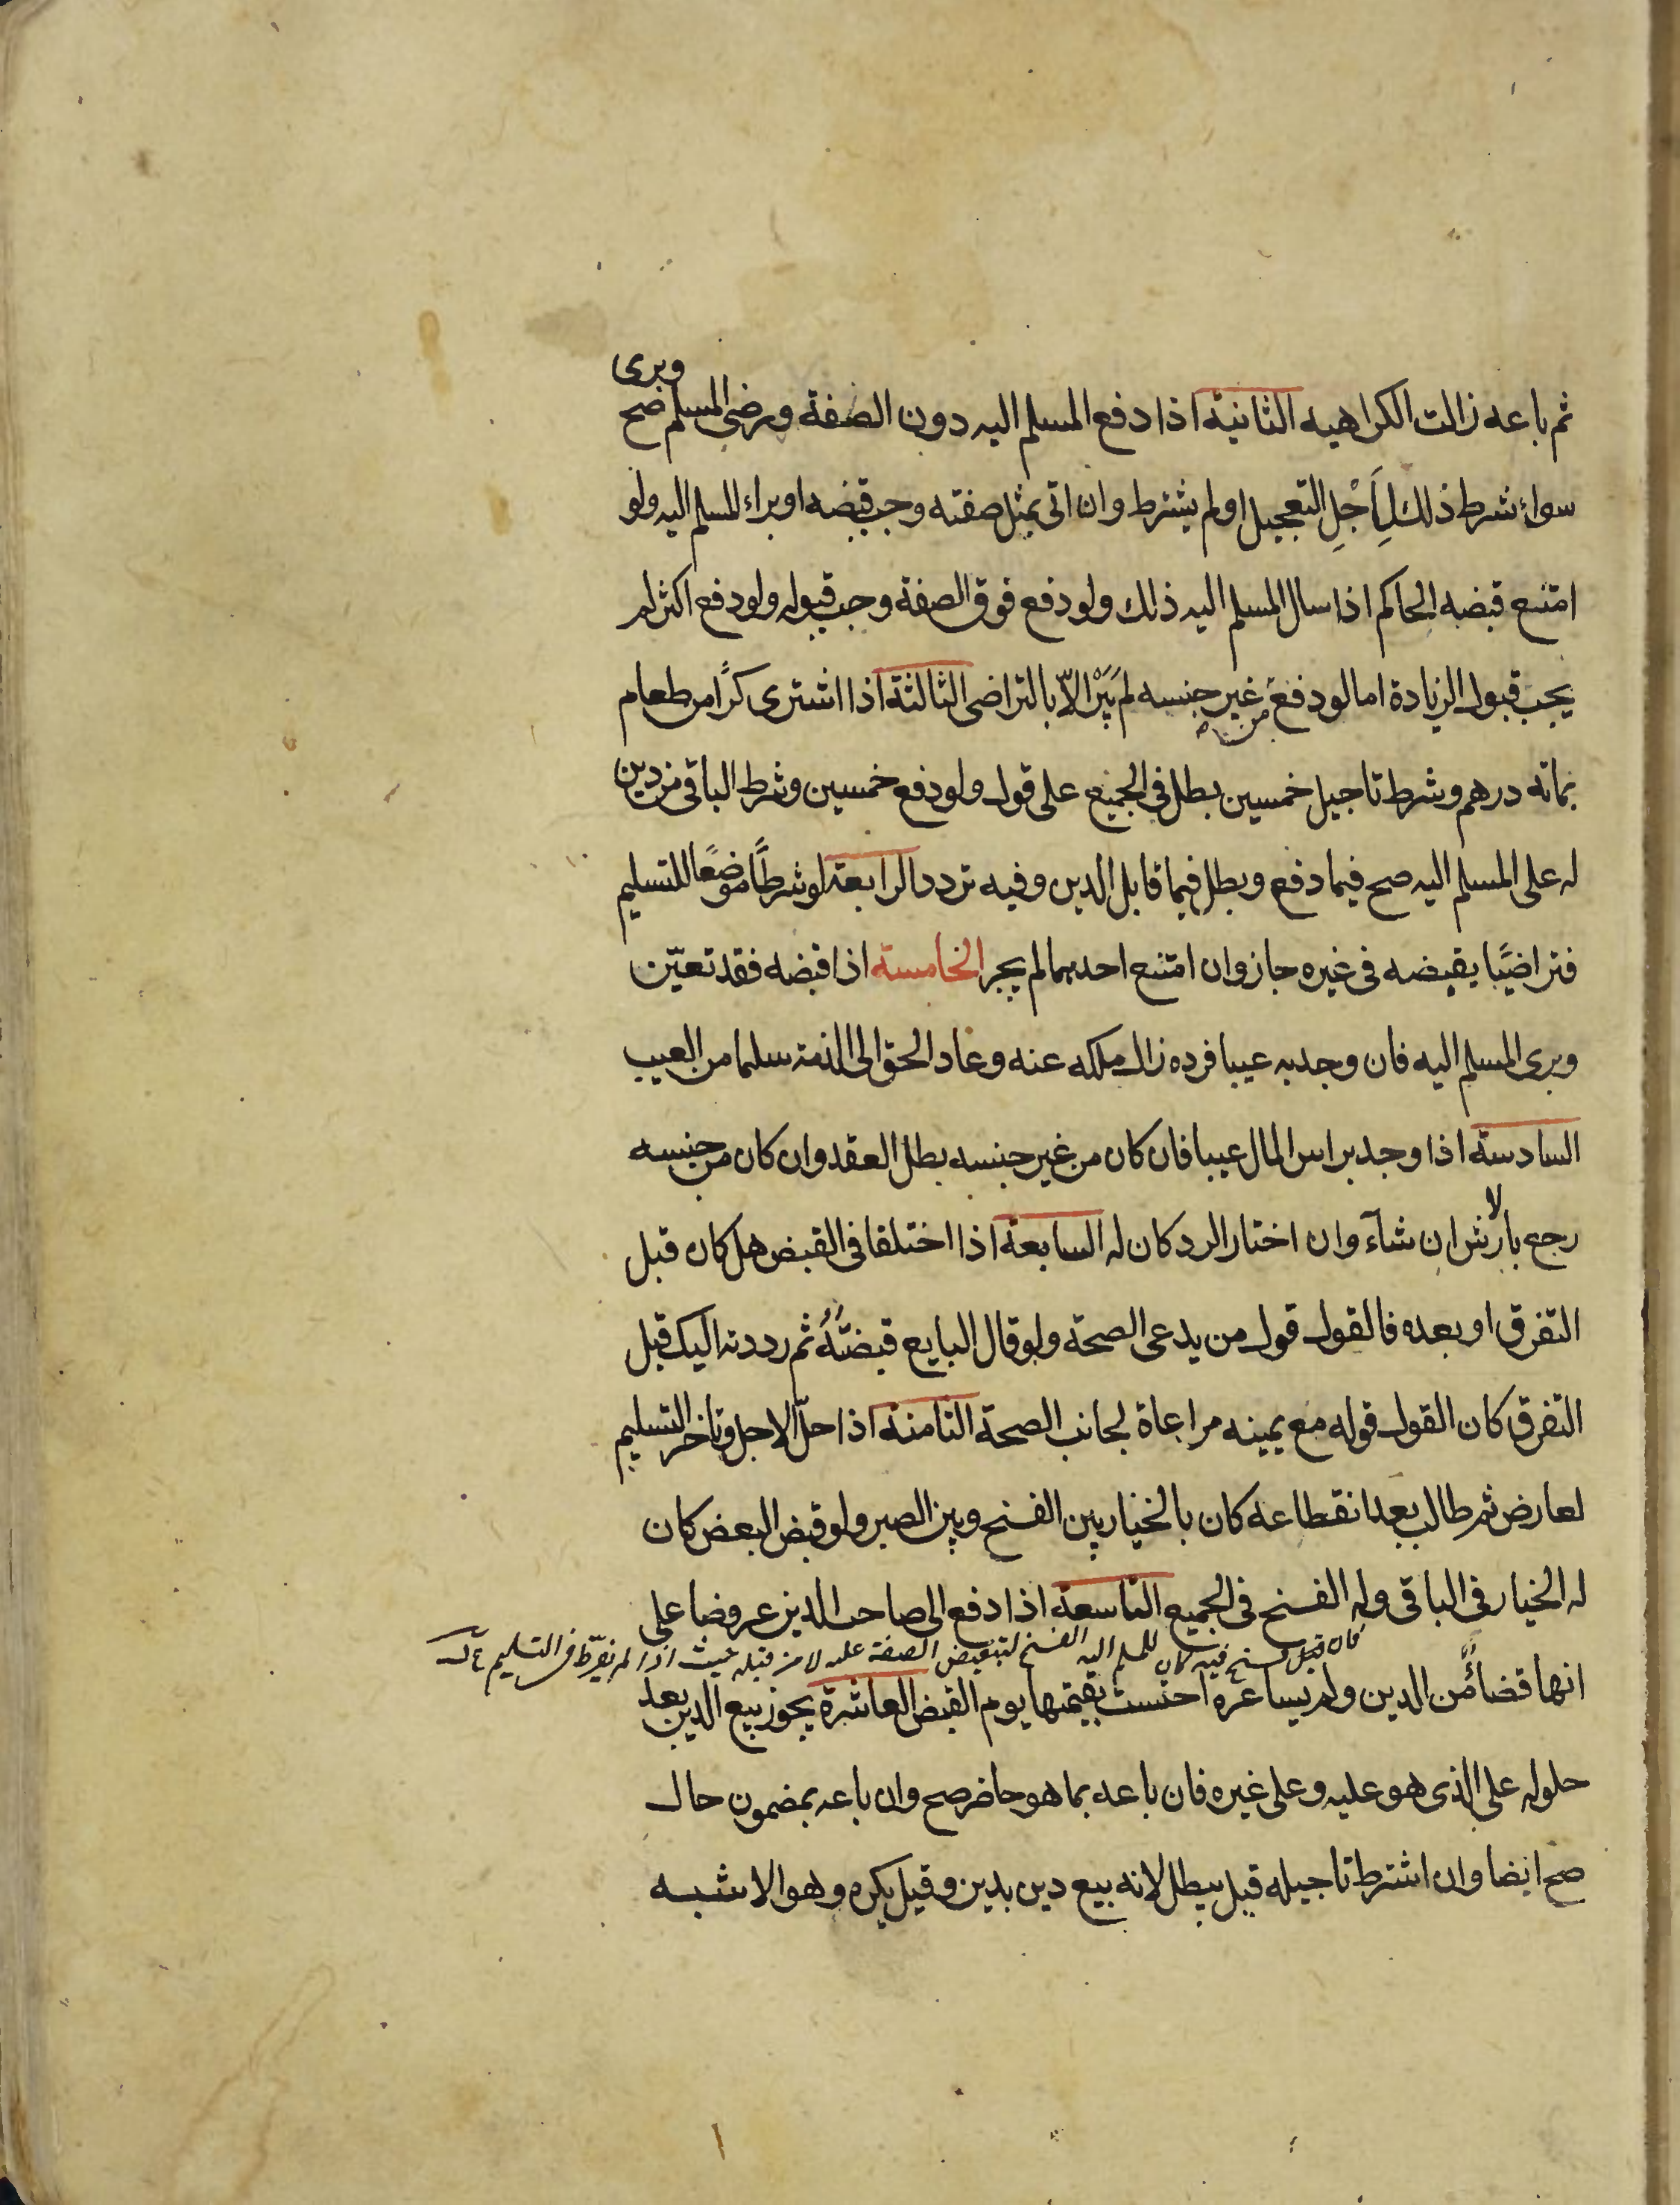 وبرى
ثم باعه زالت الكراهيه الثانية اذا دفع المسلم اليه دون الصفة ورضى المسلم صح
سواء شرط ذلك لِاَجْلِ التعجيل او لم يشترط وان اتى بمثل صفته وجب قبضه او براء المسلم اليه ولو
امتنع قبضه الحاكم اذا سال المسلم اليه ذلك ولو دفع فوق الصفة وجب قبوله ولو دفع اكثر لم
يجب قبول الزيادة اما لو دفع غير جنسه لم يَبْرَ الّا بالتراضى الثالثة اذا اشترى كرًا من طعام
من
بماته درهم وشرط تاجيل خمسين بطل فى الجميع على قول ولو دفع خمسين وشرط الباقى من دين
له على المسلم اليه صح فيما دفع وبطل فيما قابل الدين وفيه تردد الرابعة لو شرطاً موضعًا للتسليم
فتراضيًا يقبضه فى غيره جاز وان امتنع احدهما لم يجبر الخامسة اذا قبضه فقد تعيّن
وبرى المسلم اليه فان وجد به عيبا فرده زال ملكه عنه وعاد الحق الى الذمة سلما من العيب
السادسة اذا وجد براس المال عيبا فان كان من غير جنسه بطل العقد وان كان من جنسه
لا
رجع بارش ان شآء وان اختار الرد كان له السابعة اذا اختلفا فى القبض هل كان قبل
التفرق او بعده فالقول قول من يدعى الصحة ولو قال البايع قبضتُهُ ثم رددته اليك قبل
التفرق كان القول قوله مع يمينه مراعاة لجانب الصحة الثامنة اذا حلّ الاجل وتاخر التسليم
لعارض ثم طالب بعد انقطاعه كان بالخيار بين الفسخ وبين الصبر ولو قبض البعض كان
له الخيار فى الباقى وله الفسخ فى الجميع التاسعة اذا دفع الى صاحب الدين عروضا على
فان قبل فسخ فيه كان للمسلم اليه الفسخ لتبعيض الصفقة عليه لا من قبله حيث اذا لم يفرّط فى التسليم
انها قضاءً من الدين ولم يساعره احتسب بقيمتها يوم القبض العاشرة يجوز بيع الدين بعد
حلوله على الذى هو عليه وعلى غيره فان باعه بما هو حاضر صح وان باعه بمضمون حال
صح ايضا وان اشترط تاجيله قيل يبطل لانه بيع دين بدين وقيل يكره وهو الاشبه